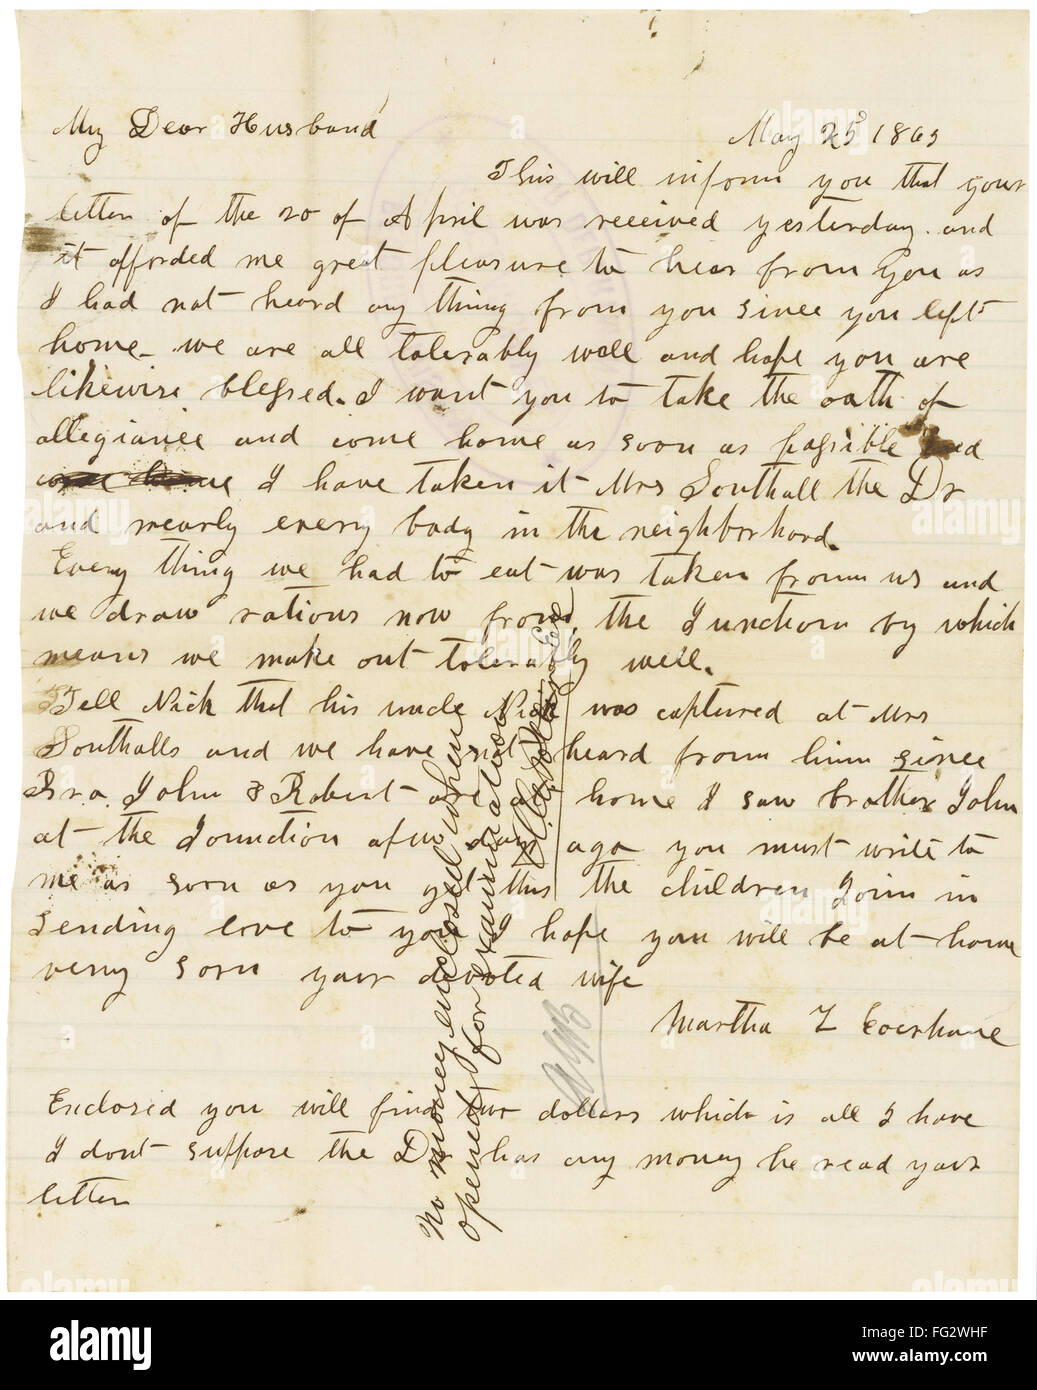 My Dear Husband
May 25 1865
This will inform you that your
letter of the 20 of April was received yesterday. and
it afforded me great pleasure to hear from you as
I had not heard any thing from you since you left
home_ we are all tolerably well and hope you are
likewise blessed. I want you to take the oath of
allegiance and come home as soon as possible and
come home I have taken it Mrs Southall the Dr
and nearly every body in the neighborhood.
Every thing we had to eat was taken from us and
we draw rations now from the Junction by which
means we make out tolerably well.
Tell Nick that his uncle Nick was captured at Mrs
Southalls and we have not heard from him since
Bro. John & Robert are home I saw brother John
at the Junction a few days ago you must write to
me as soon as you get this the children Join in
sending love to you I hope you will be at home
very soon your devoted wife
Martha L Everhart
Enclosed you will find two dollars which is all I have
I dont suppose the Dr has any money he read your
letter
No money enclosed when
opened for examination
alamy
Image ID: FG2WHF
www.alamy.com